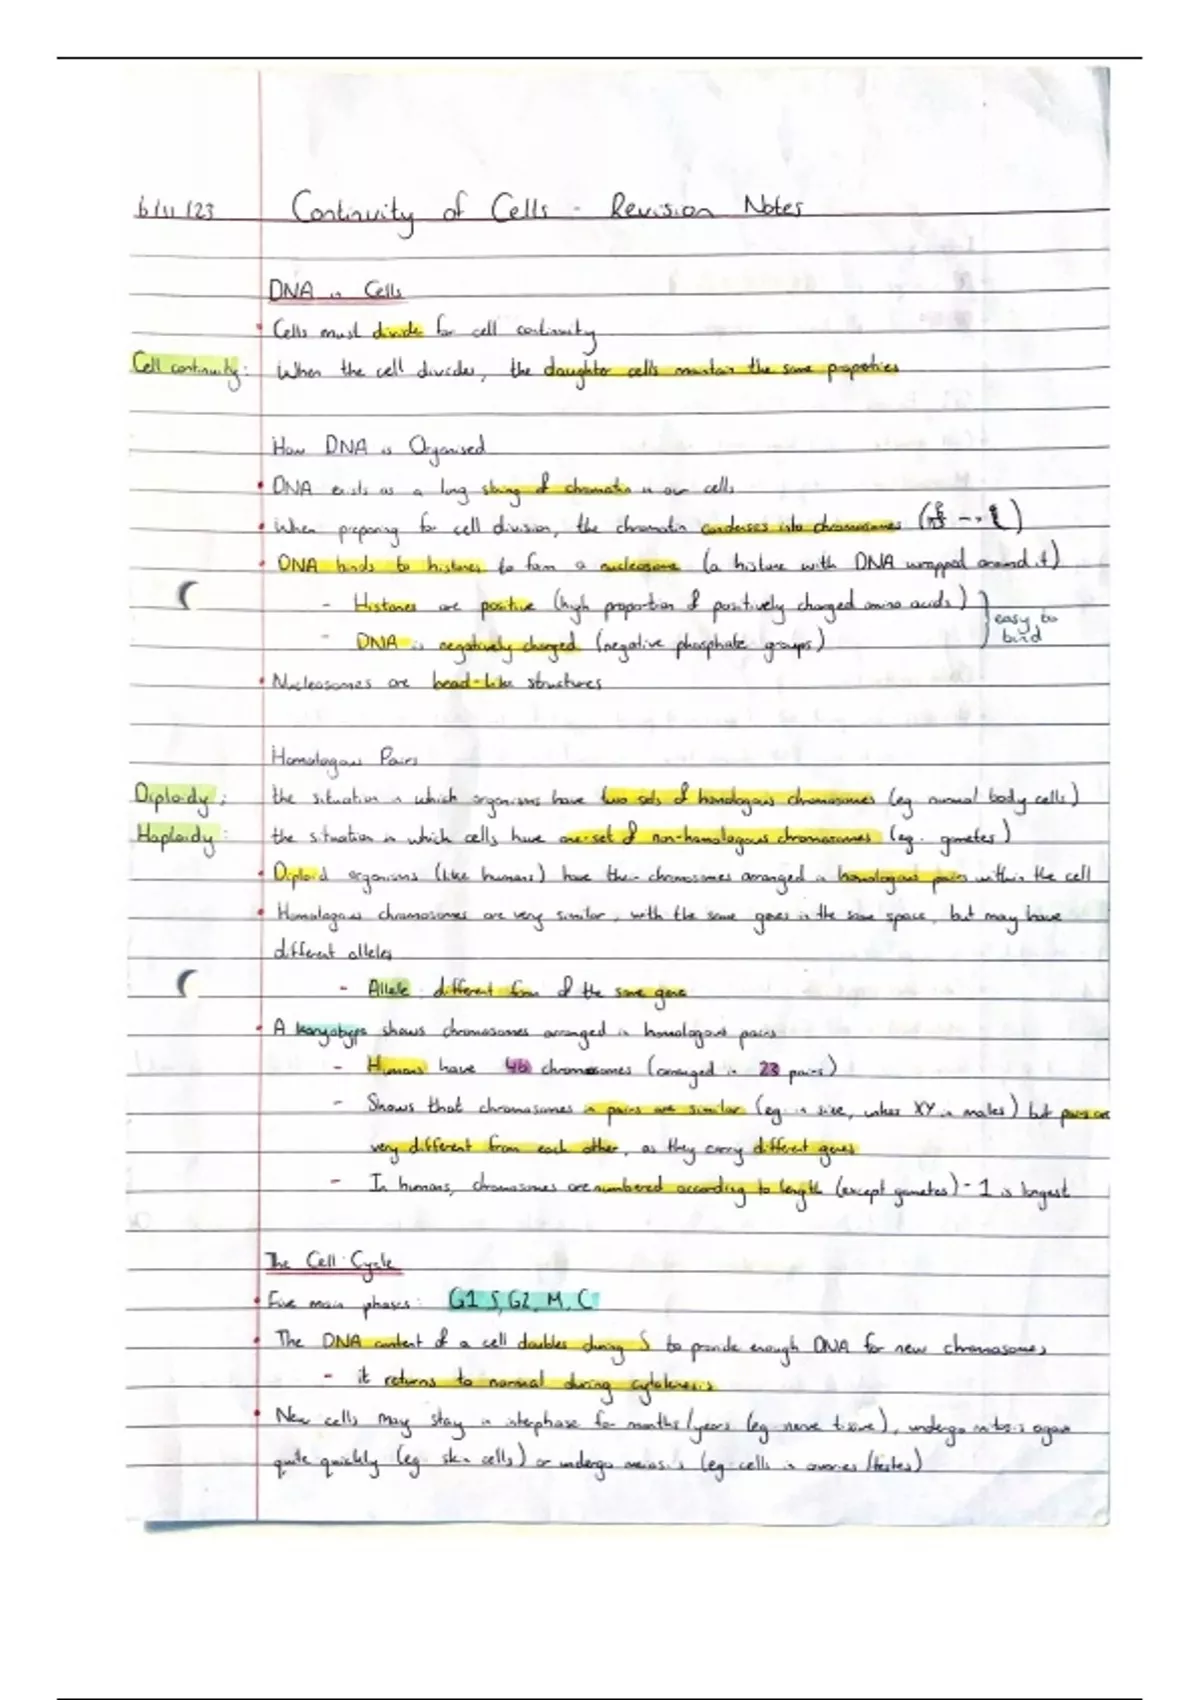 6/11/23 Continuity of Cells - Revision Notes
DNA in Cells
Cells must divide for cell continuity
Cell continuity: When the cell divides, the daughter cells maintain the same properties
How DNA is Organised
DNA exists as a long string of chromatin in our cells
When preparing for cell division, the chromatin condenses into chromosomes
DNA binds to histones to form a nucleosome (a histone with DNA wrapped around it)
- Histones are positive (high proportion of positively charged amino acids)
- DNA is negatively charged (negative phosphate groups)
easy to
bind
Nucleosomes are bead-like structures
Homologous Pairs
Diploidy: the situation in which organisms have two sets of homologous chromosomes (eg normal body cells)
Haploidy: the situation in which cells have one set of non-homologous chromosomes (eg. gametes)
Diploid organisms (like humans) have their chromosomes arranged in homologous pairs within the cell
Homologous chromosomes are very similar, with the same genes in the same space, but may have
different alleles
- Allele: different form of the same gene
A karyotype shows chromosomes arranged in homologous pairs
- Humans have 46 chromosomes (arranged in 23 pairs)
- Shows that chromosomes in pairs are similar (eg in size, unless XY in males) but pairs are
very different from each other, as they carry different genes
- In humans, chromosomes are numbered according to length (except gametes) - 1 is longest
The Cell Cycle
Five main phases: G1 S, G2, M, C
The DNA content of a cell doubles during S to provide enough DNA for new chromosomes
- it returns to normal during cytokinesis
New cells may stay in interphase for months/years (eg nerve tissue), undergo mitosis again
quite quickly (eg. skin cells) or undergo meiosis (eg cells in ovaries/testes)